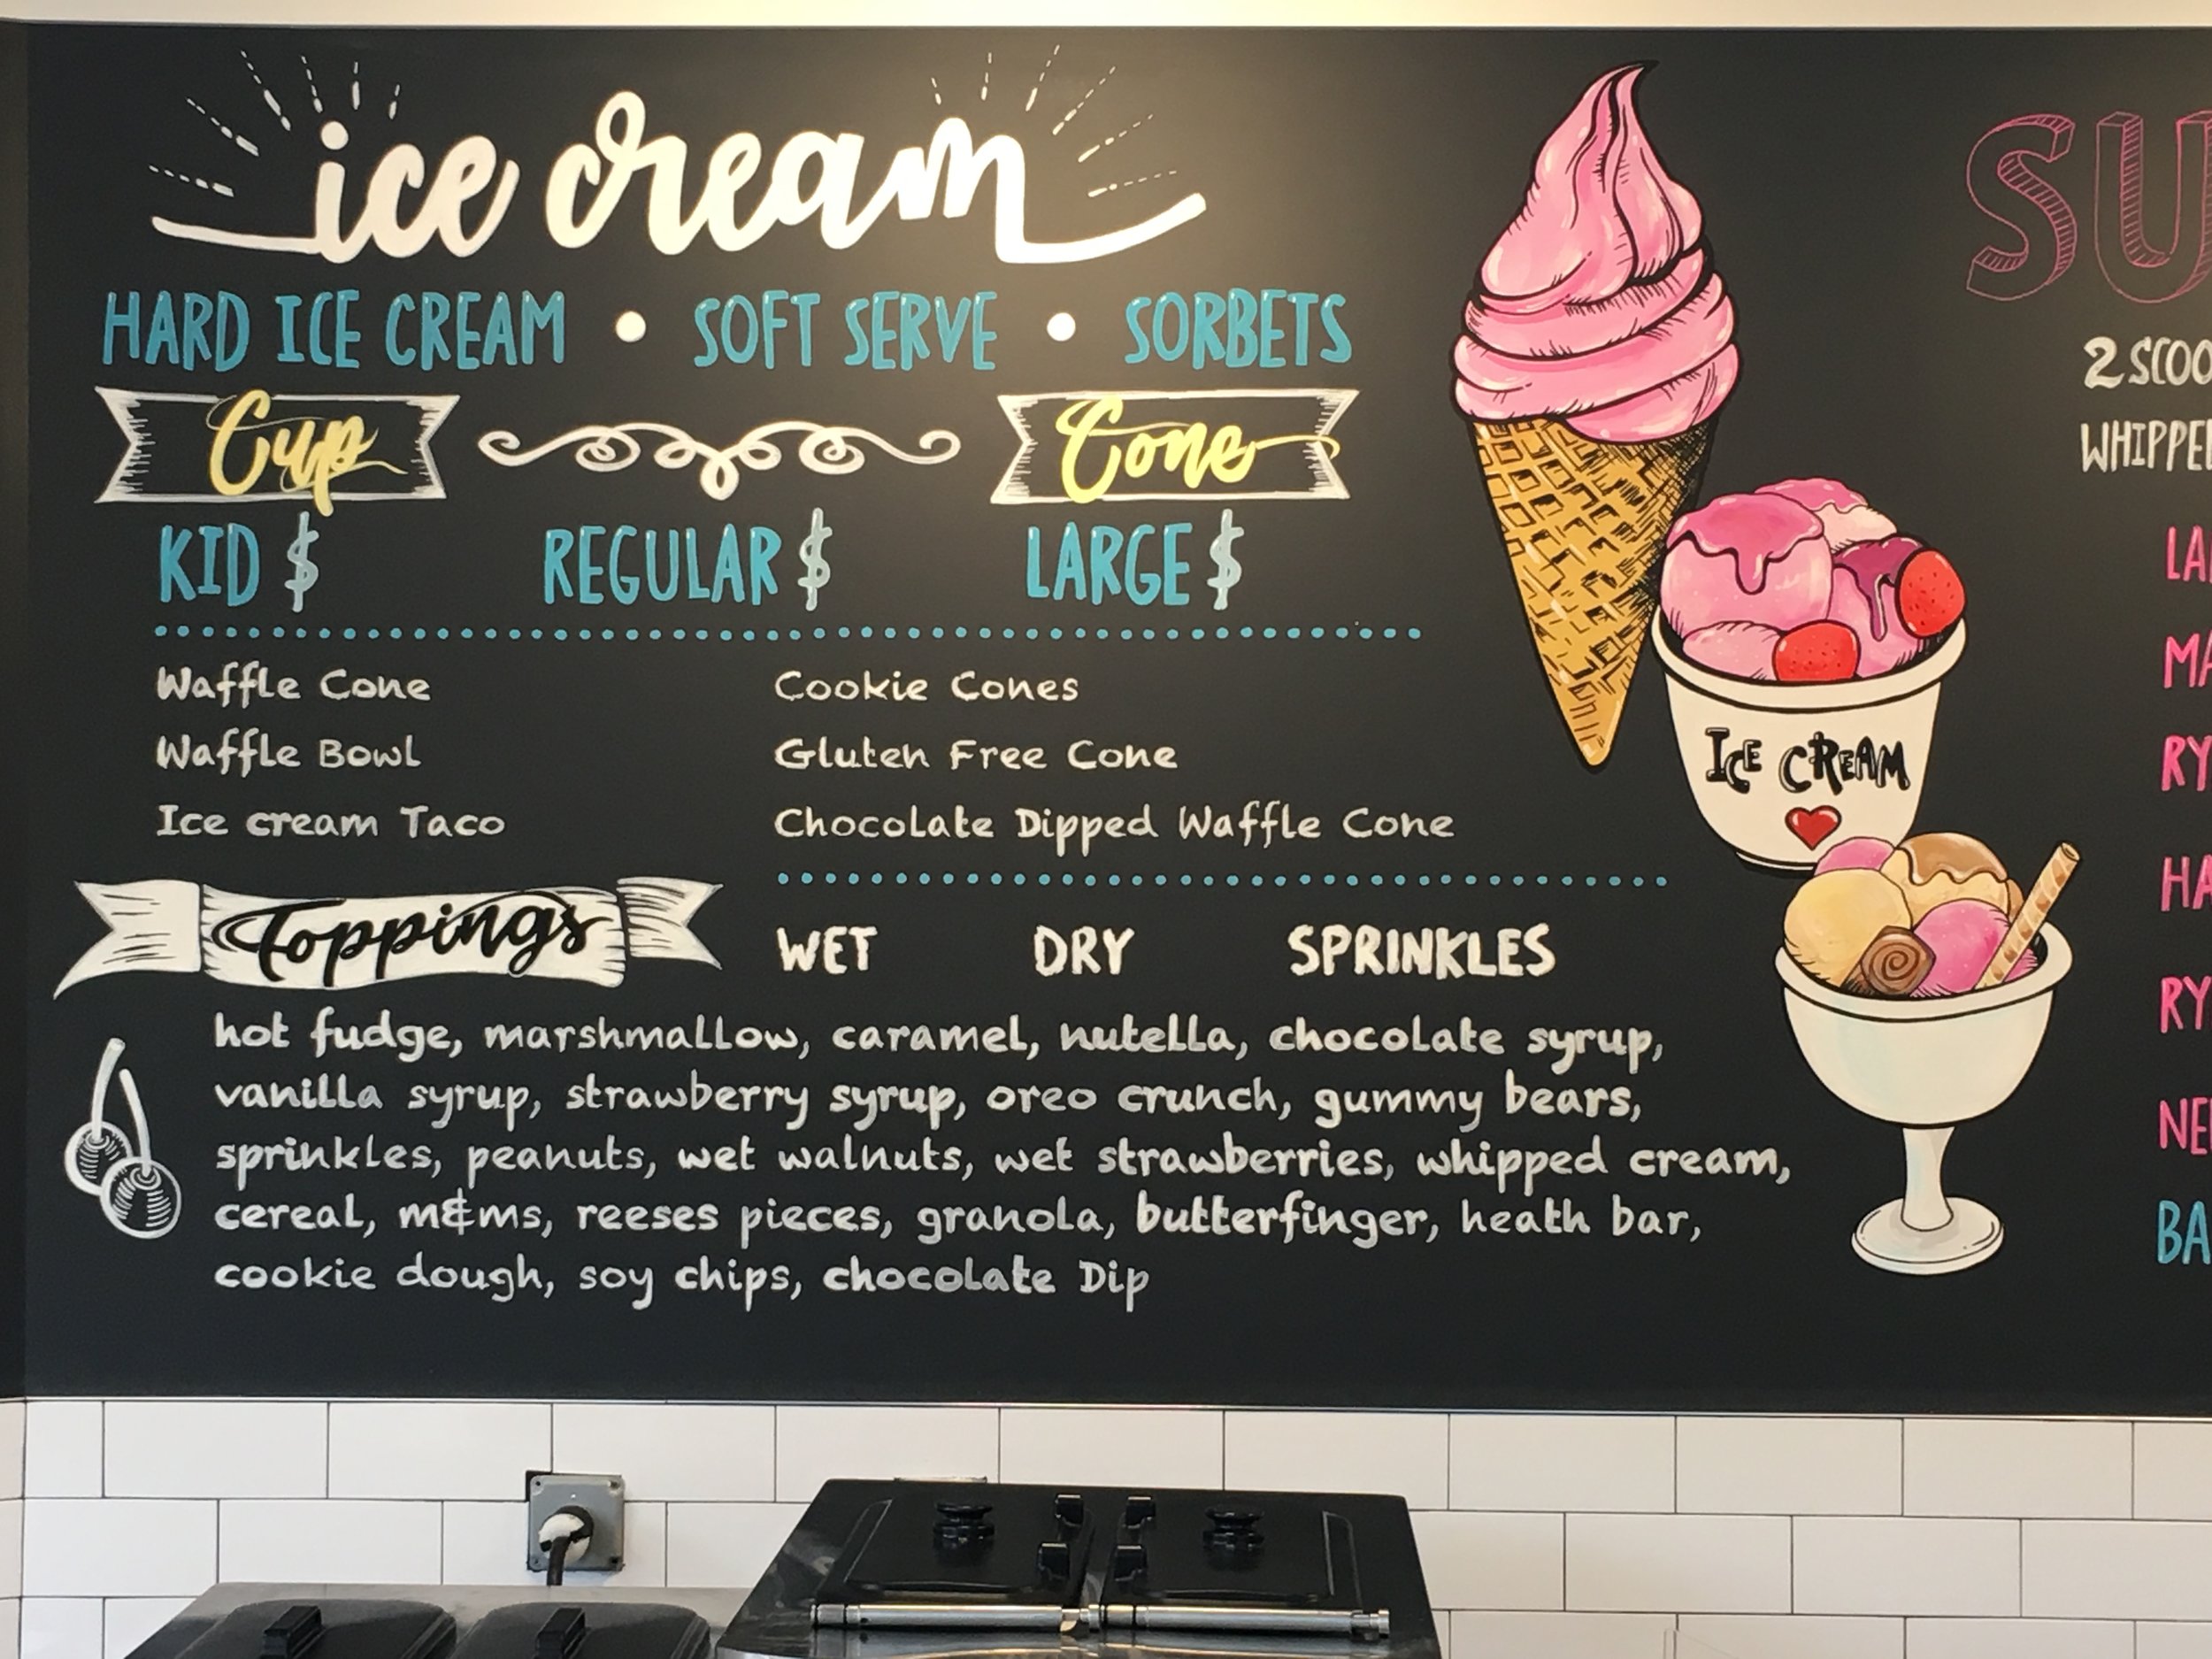 ice cream
HARD ICE CREAM • SOFT SERVE • SORBETS
Cup Cone
KID $ REGULAR $ LARGE $
Waffle Cone Cookie Cones
Waffle Bowl Gluten Free Cone
Ice cream Taco Chocolate Dipped Waffle Cone
Toppings WET DRY SPRINKLES
hot fudge, marshmallow, caramel, nutella, chocolate syrup,
vanilla syrup, strawberry syrup, oreo crunch, gummy bears,
sprinkles, peanuts, wet walnuts, wet strawberries, whipped cream,
cereal, m&ms, reeses pieces, granola, butterfinger, heath bar,
cookie dough, soy chips, chocolate Dip
ICE CREAM
SU
2 SCOO
WHIPPE
LA
MA
RY
HA
RY
NE
BA